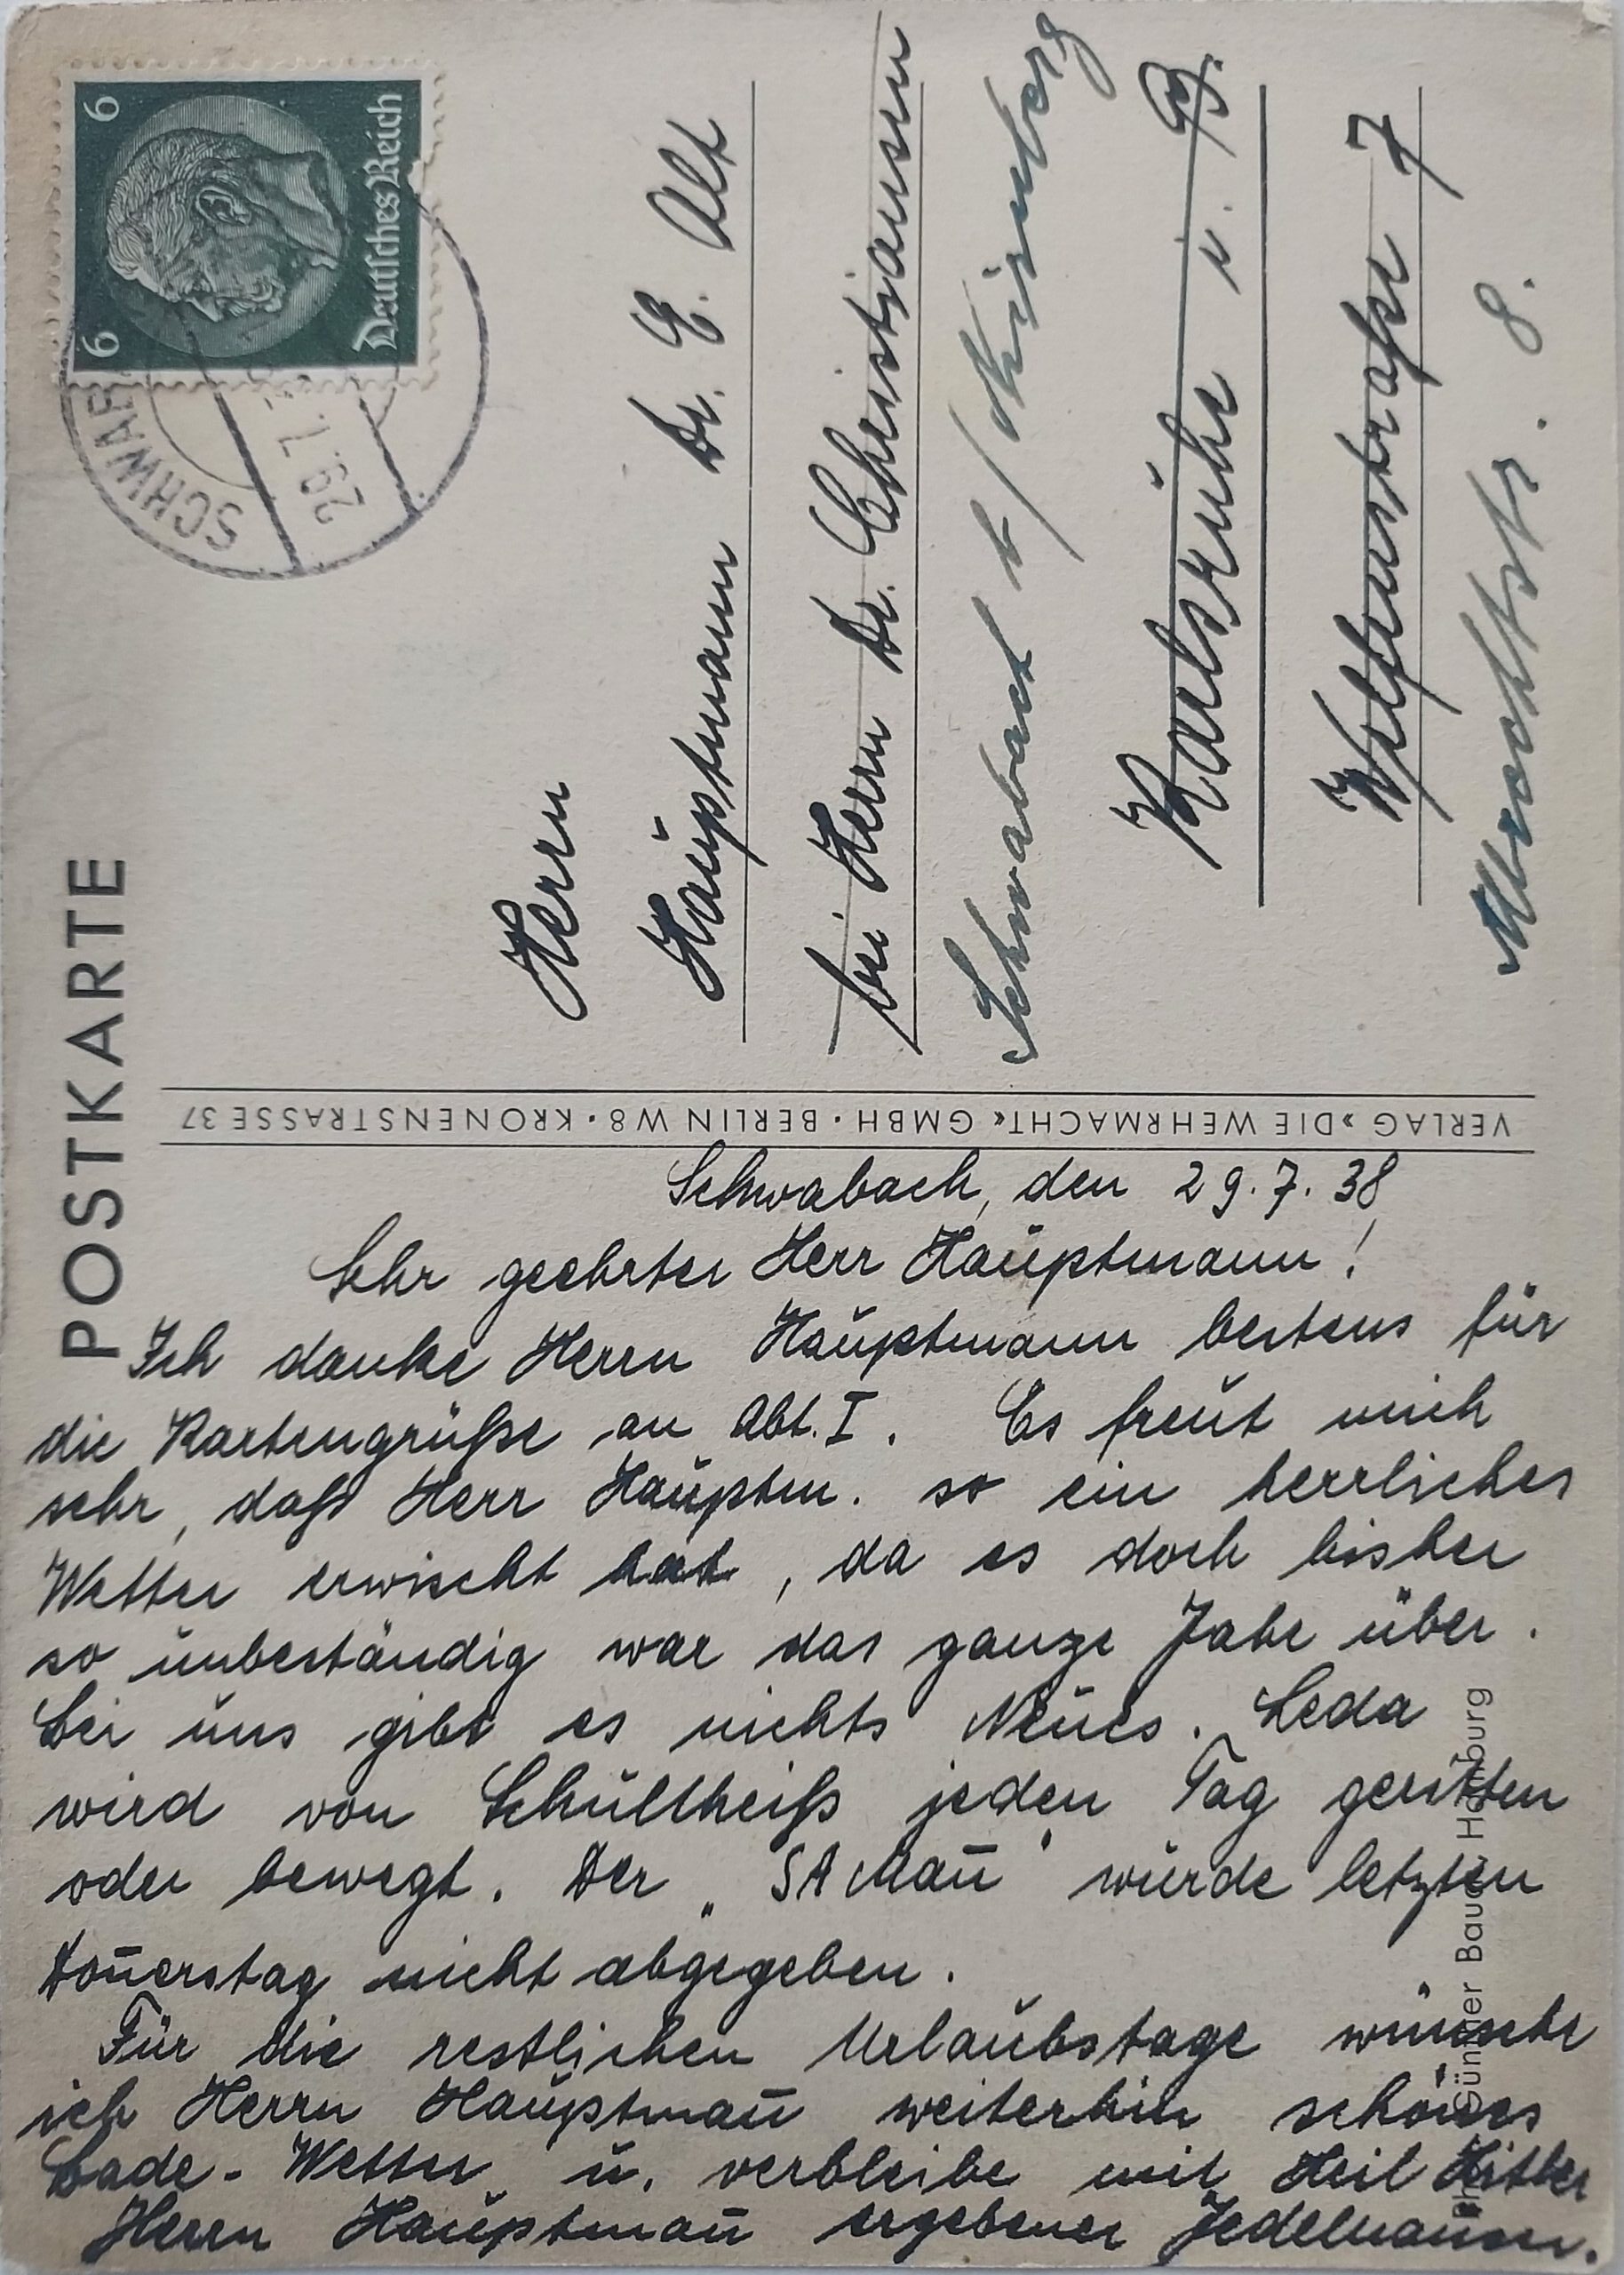 POSTKARTE
6 6
Deutsches Reich
SCHWAB
29.7.
Herrn
Hauptmann Dr. E. Alt
bei Herrn Dr. Christiansen
Schwabach b/Nürnberg
Karlsruhe i. B.
Welfenstraße 7
8.
VERLAG »DIE WEHRMACHT« GMBH · BERLIN W8 · KRONENSTRASSE 37
Schwabach, den 29.7.38
Sehr geehrter Herr Hauptmann!
Ich danke Herrn Hauptmann bestens für
die Kartengrüße an Abt. I. Es freut mich
sehr, daß Herr Hauptm. so ein herrliches
Wetter erwischt hat, da es doch bisher
so unbeständig war das ganze Jahr über.
Bei uns gibt es nichts Neues. Leda
wird von Schultheiß jeden Tag geritten
oder bewegt. Der „SA Man̄" wurde letzten
Don̄erstag nicht abgegeben.
Für die restlichen Urlaubstage wünsche
ich Herrn Hauptman̄ weiterhin schönes
Bade-Wetter u. verbleibe mit Heil Hitler
Herrn Hauptman̄ ergebener Jedelhauser.
Günther Bauer Hamburg